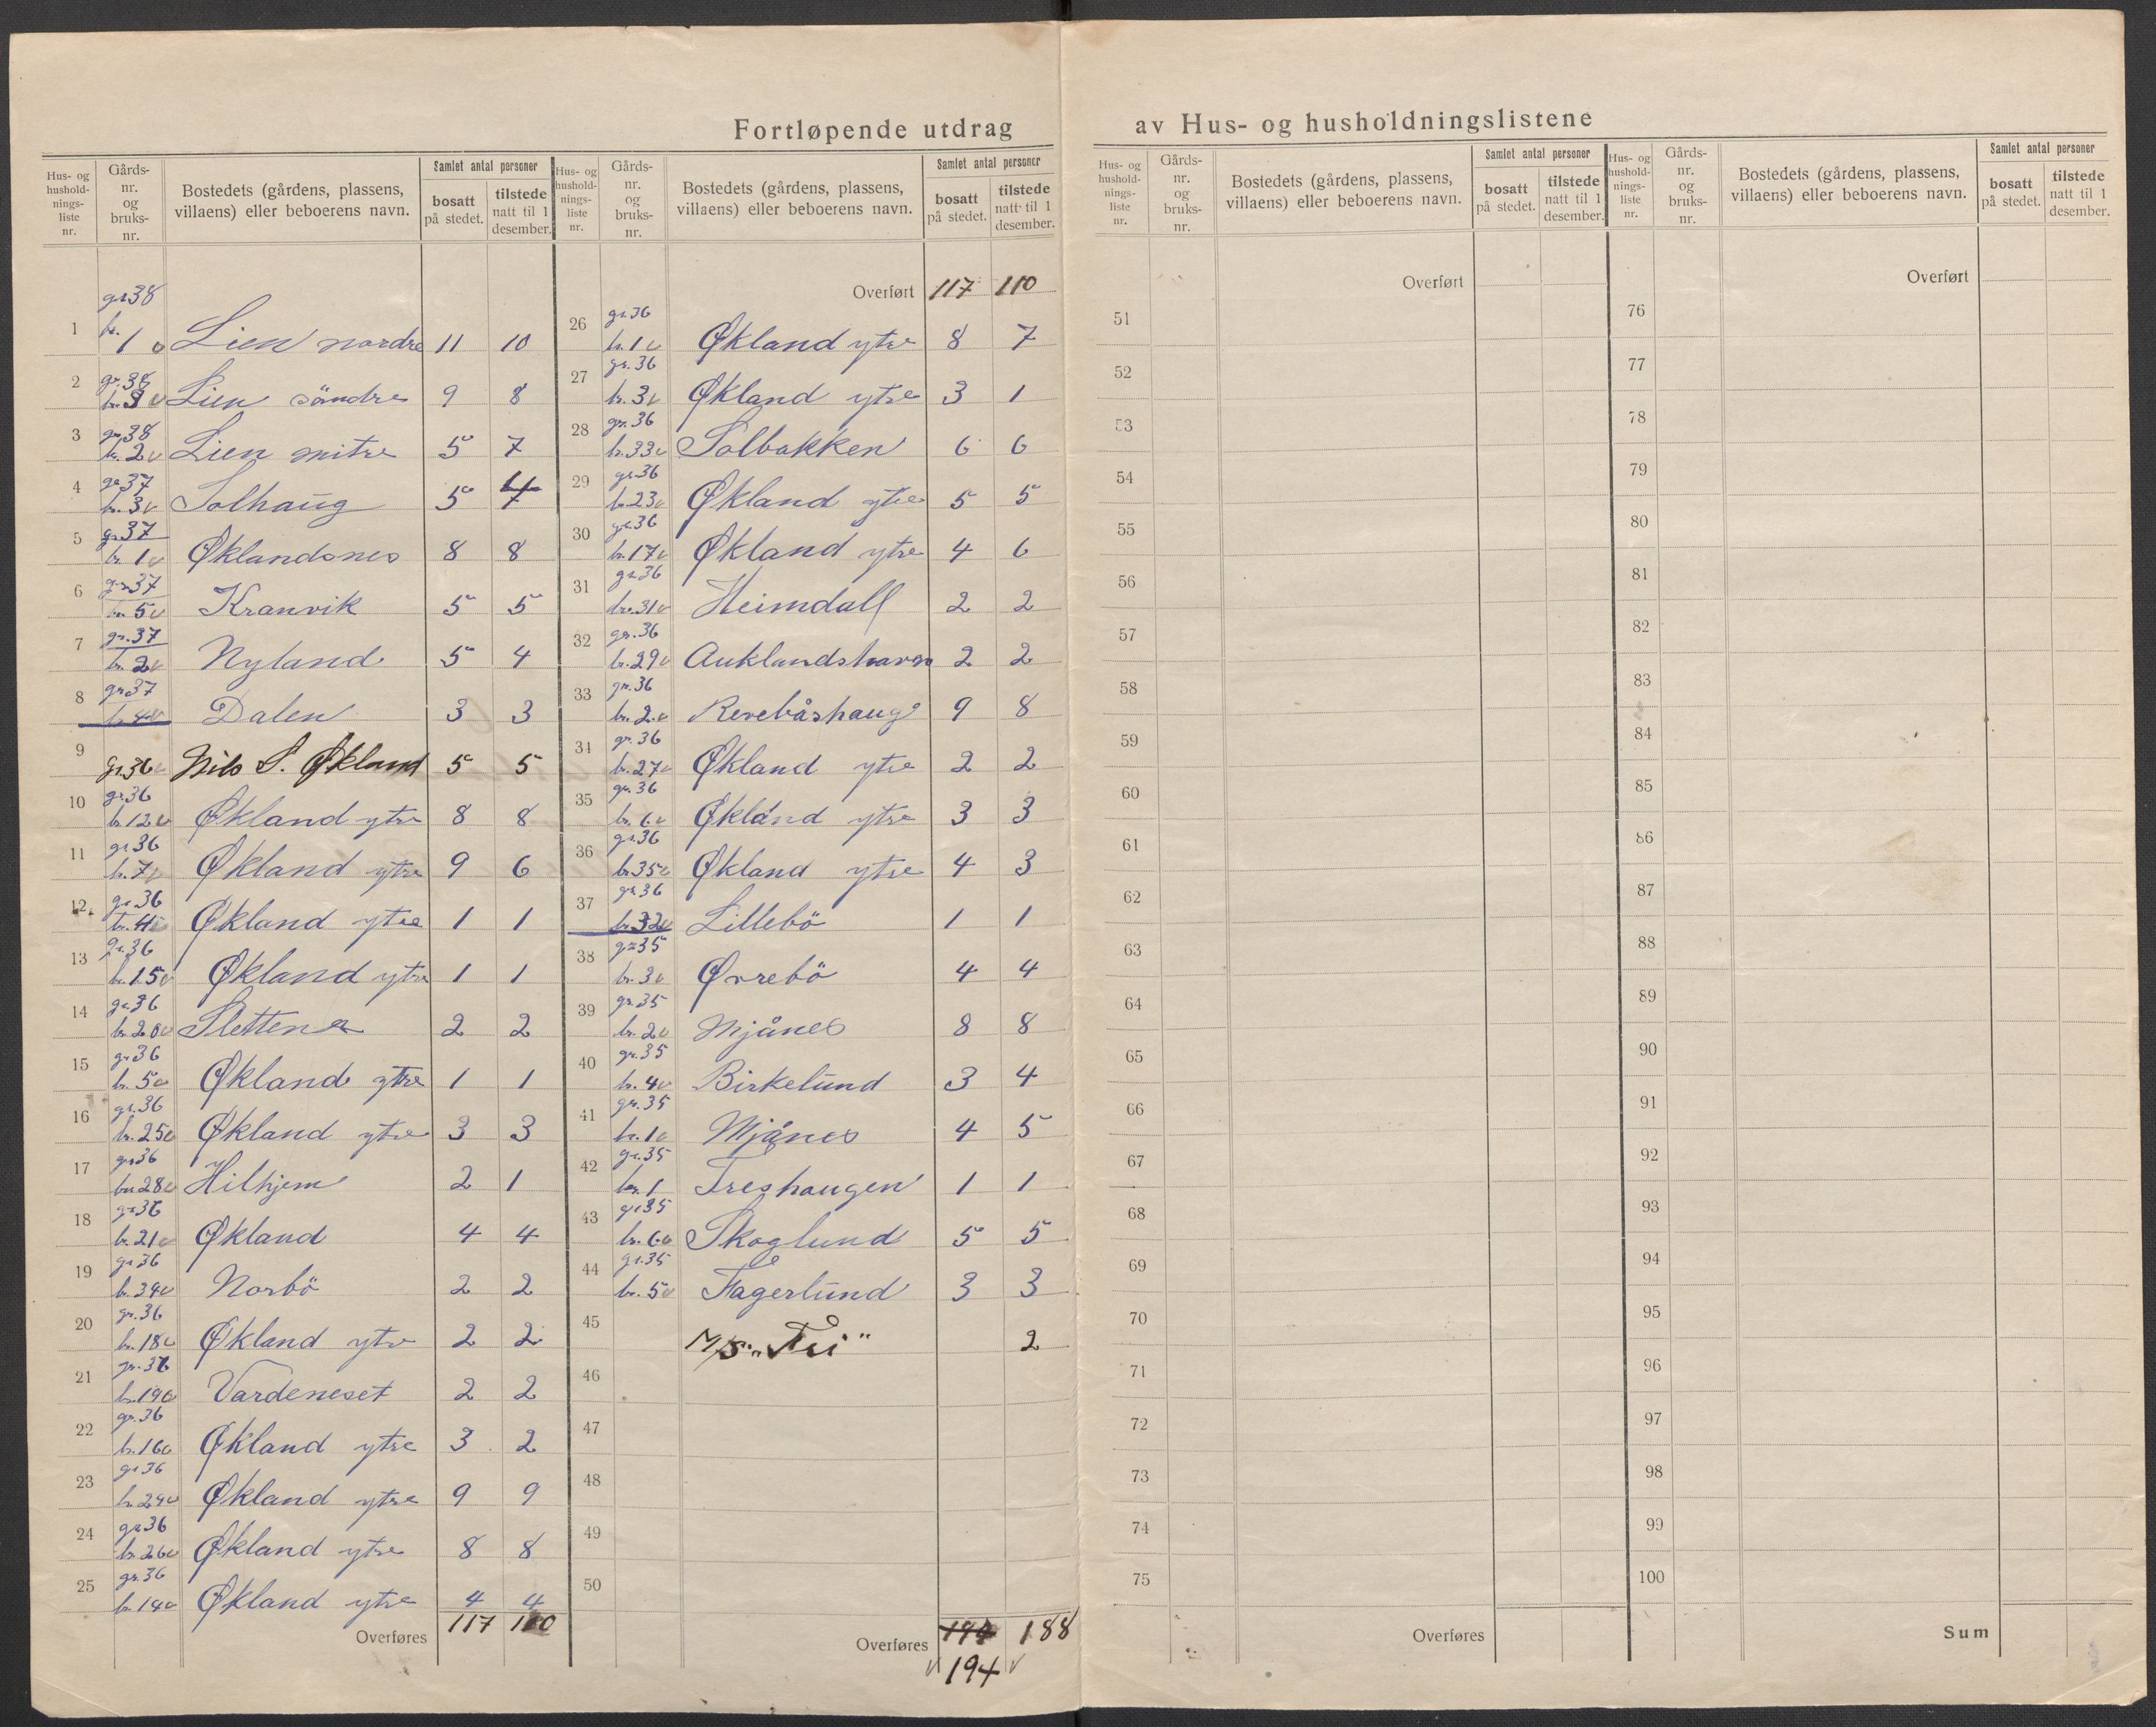 Fortløpende utdrag av Hus- og husholdningslistene
Hus- og hushold- nings- liste nr. | Gårds- nr. og bruks- nr. | Bostedets (gårdens, plassens, villaens) eller beboerens navn. | Samlet antal personer | bosatt på stedet. | tilstede natt til 1 desember.
1 | gr 38 br. 1 | Lien nordre | 11 | 10
2 | gr. 38 br. 3 | Lien söndre | 9 | 8
3 | gr. 38 br. 2 | Lien mitre | 5 | 7
4 | gr 37 br. 3 | Solhaug | 5 | 4
5 | gr 37 br. 1 | Øklandsnes | 8 | 8
6 | gr 37 br. 5 | Kranvik | 5 | 5
7 | gr. 37 br. 2 | Nyland | 5 | 4
8 | gr 37 br 4 | Dalen | 3 | 3
9 | gr. 36 | Nils S. Økland | 5 | 5
10 | gr. 36 br 12 | Økland ytre | 8 | 8
11 | gr 36 br. 7 | Økland ytre | 9 | 6
12 | gr. 36 br. 4 | Økland ytre | 1 | 1
13 | gr. 36 br. 15 | Økland ytre | 1 | 1
14 | gr 36 br. 20 | Sletten | 2 | 2
15 | gr 36 br. 5 | Økland ytre | 1 | 1
16 | gr. 36 br. 25 | Økland ytre | 3 | 3
17 | gr 36 br 28 | Hilhjem | 2 | 1
18 | gr 36 br. 21 | Økland | 4 | 4
19 | gr 36 br. 34 | Norbö | 2 | 2
20 | gr. 36 br. 18 | Økland ytre | 2 | 2
21 | gr. 36 br. 19 | Vardeneset | 2 | 2
22 | gr. 36 br. 16 | Økland ytre | 3 | 2
23 | gr 36 br 24 | Økland ytre | 9 | 9
24 | gr 36 br. 26 | Økland ytre | 8 | 8
25 | gr. 36 br. 14 | Økland ytre | 4 | 4
Overføres | 117 | 110
Hus- og hushold- nings- liste nr. | Gårds- nr. og bruks- nr. | Bostedets (gårdens, plassens, villaens) eller beboerens navn. | Samlet antal personer | bosatt på stedet. | tilstede natt til 1 desember.
Overført | 117 | 110
26 | gr. 36 br. 1 | Økland ytre | 8 | 7
27 | gr. 36 br. 3 | Økland ytre | 3 | 1
28 | gr. 36 br. 33 | Solbakken | 6 | 6
29 | gr. 36 br. 23 | Økland ytre | 5 | 5
30 | gr. 36 br. 17 | Økland ytre | 4 | 6
31 | gr 36 br. 31 | Heimdall | 2 | 2
32 | gr. 36 br. 29 | Auklandshavn | 2 | 2
33 | gr. 36 br. 2 | Revebåshaug | 9 | 8
34 | gr. 36 br. 27 | Økland ytre | 2 | 2
35 | gr. 36 br. 6 | Økland ytre | 3 | 3
36 | gr. 36 br 35 | Økland ytre | 4 | 3
37 | gr 36 br. 32 | Lillebö | 1 | 1
38 | gr 35 br. 3 | Øvrebö | 4 | 4
39 | gr. 35 br. 2 | Mjånes | 8 | 8
40 | gr. 35 br. 4 | Birkelund | 3 | 4
41 | gr. 35 br. 1 | Mjånes | 4 | 5
42 | gr. 35 br. 1 | Treshaugen | 1 | 1
43 | gr 35 br. 6 | Skoglund | 5 | 5
44 | gr. 35 br. 5 | Fagerlund | 3 | 3
45 | M/S. „Fri" | 2
46
47
48
49
50
Overføres | 188
194
Hus- og hushold- nings- liste nr. | Gårds- nr. og bruks- nr. | Bostedets (gårdens, plassens, villaens) eller beboerens navn. | Samlet antal personer | bosatt på stedet. | tilstede natt til 1 desember.
Overført
51
52
53
54
55
56
57
58
59
60
61
62
63
64
65
66
67
68
69
70
71
72
73
74
75
Overføres
Hus- og hushold- nings- liste nr. | Gårds- nr. og bruks- nr. | Bostedets (gårdens, plassens, villaens) eller beboerens navn. | Samlet antal personer | bosatt på stedet. | tilstede natt til 1 desember.
Overført
76
77
78
79
80
81
82
83
84
85
86
87
88
89
90
91
92
93
94
95
96
97
98
99
100
Sum